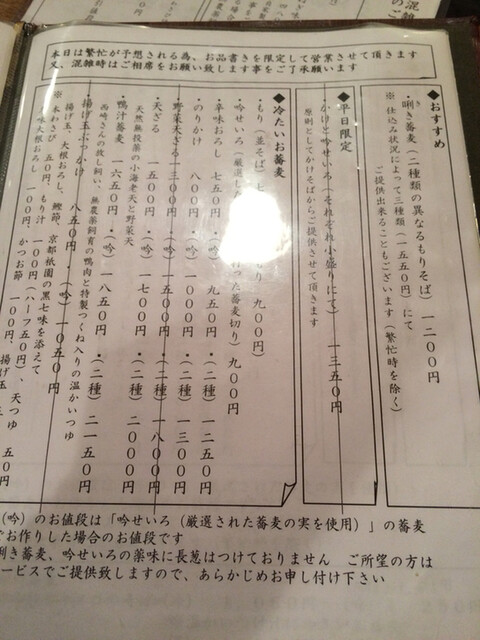 本日は繁忙が予想される為、お品書きを限定して営業させて頂きます
又、混雑時はご相席をお願い致します事をご了承願います
◆おすすめ
・唎き蕎麦（二種類の異なるもりそば）一二〇〇円
※仕込み状況によって三種類（一五五〇円）にて
ご提供出来ることもございます（繁忙時を除く）
◆平日限定
・かけと吟せいろ（それぞれ小盛りにて）一三五〇円
原則としてかけそばからご提供させて頂きます
◆冷たいお蕎麦
・もり（並そば）七
もり 九〇〇円）
・吟せいろ（厳選した
打った蕎麦切り）九〇〇円
・辛味おろし 七五〇円・（吟）九五〇円・（二種）一二五〇円
・のりかけ 八〇〇円・（吟）一〇〇〇円・（二種）一三〇〇円
・野菜天ざる 一三〇〇円・（吟）一五〇〇円・（二種）一八〇〇円
・天ざる 一五〇〇円・（吟）一七〇〇円・（二種）二〇〇〇円
天然無投薬の小海老天と野菜天
・鴨汁蕎麦 一六五〇円・（吟）一八五〇円・（二種）二一五〇円
西崎さんの放し飼い、無農薬飼育の鴨肉と特製つくね入りの温かいつゆ
・揚げ玉ぶっかけ 八五〇円・（吟）一〇五〇円
揚げ玉、大根おろし、鰹節、京都祇園の黒七味を添えて
※本わさび 五〇円、もり汁 一〇〇円（ハーフ五〇円）、
辛味大根おろし 一〇〇円、かつお節 一〇〇円、揚げ玉 五〇円
（吟）のお値段は「吟せいろ（厳選された蕎麦の実を使用）」の蕎麦
でお作りした場合のお値段です
唎き蕎麦、吟せいろの薬味に長葱はつけておりません ご所望の方は
サービスでご提供致しますので、あらかじめお申し付け下さい